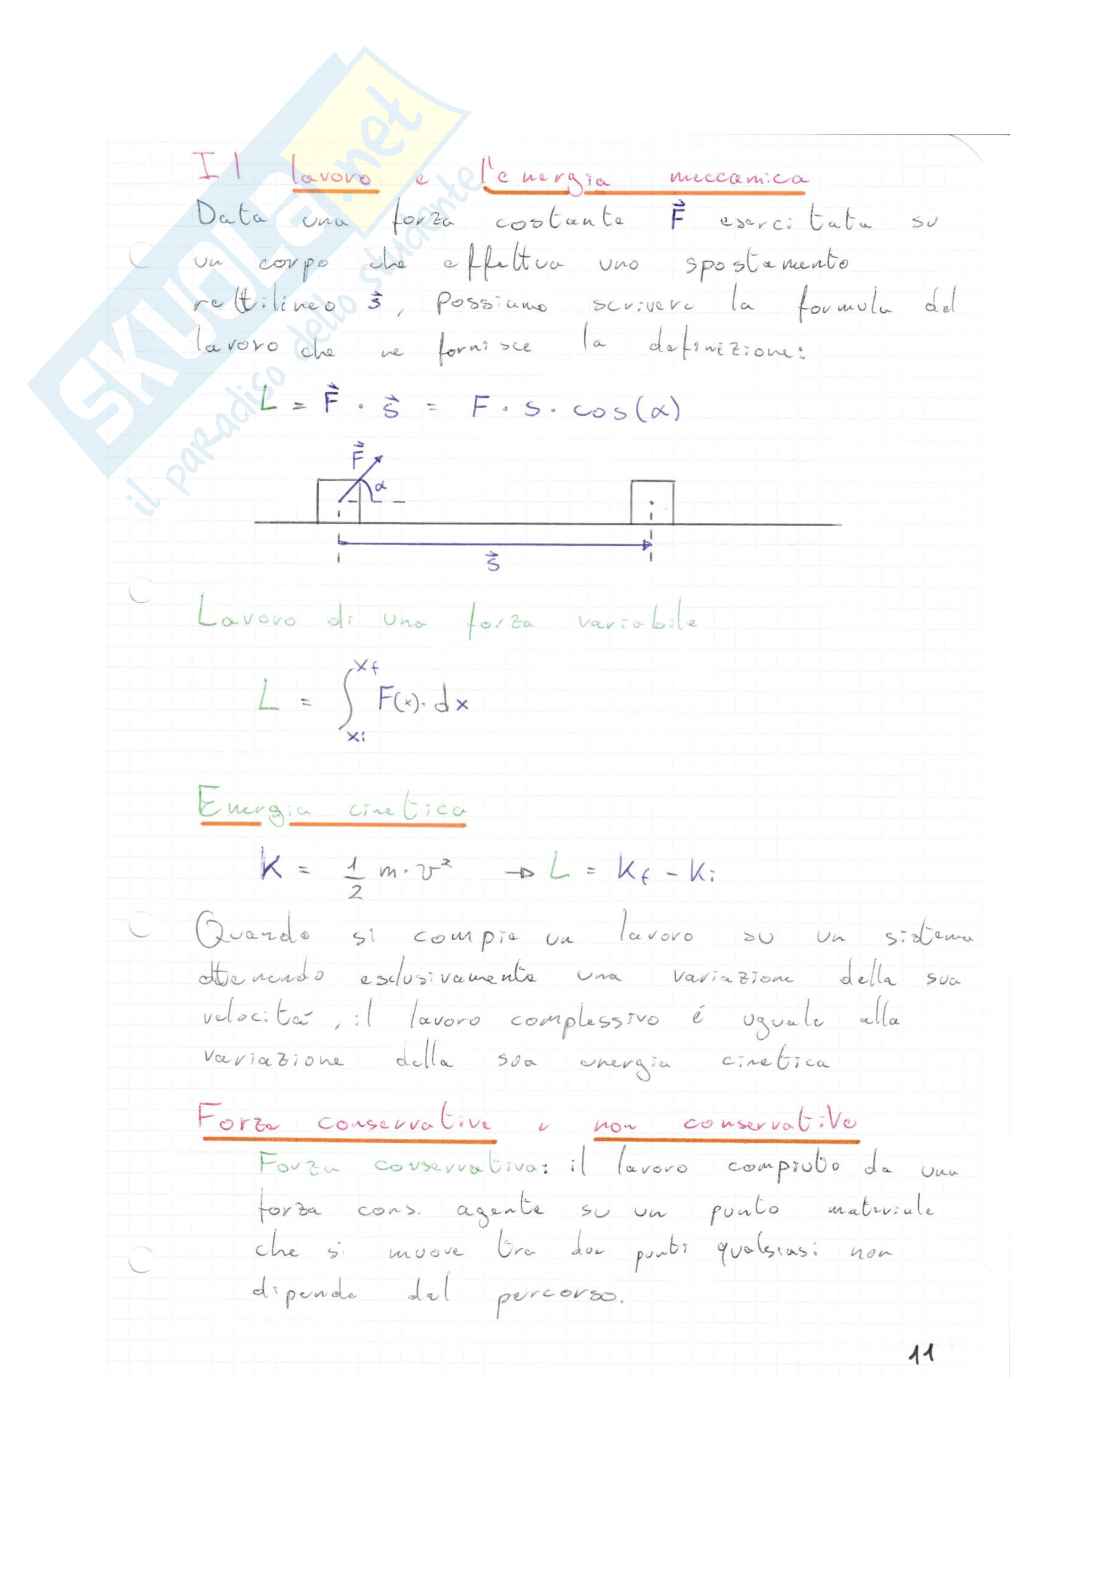 SKUOLA.net
il paradiso dello studente
Il lavoro e l'energia meccanica
Data una forza costante F⃗ esercitata su
un corpo che effettua uno spostamento
rettilineo s⃗, possiamo scrivere la formula del
lavoro che ne fornisce la definizione:
L = F⃗ · s⃗ = F · s · cos(α)
F⃗
α
s⃗
Lavoro di una forza variabile
L = ∫ₓᵢˣᶠ F(x)· dx
Energia cinetica
K = 1/2 m·v² → L = Kf - Ki
Quando si compie un lavoro su un sistema
ottenendo esclusivamente una variazione della sua
velocità, il lavoro complessivo é uguale alla
variazione della sua energia cinetica
Forze conservative e non conservative
Forza conservativa: il lavoro compiuto da una
forza cons. agente su un punto materiale
che si muove tra due punti qualsiasi non
dipende dal percorso.
11